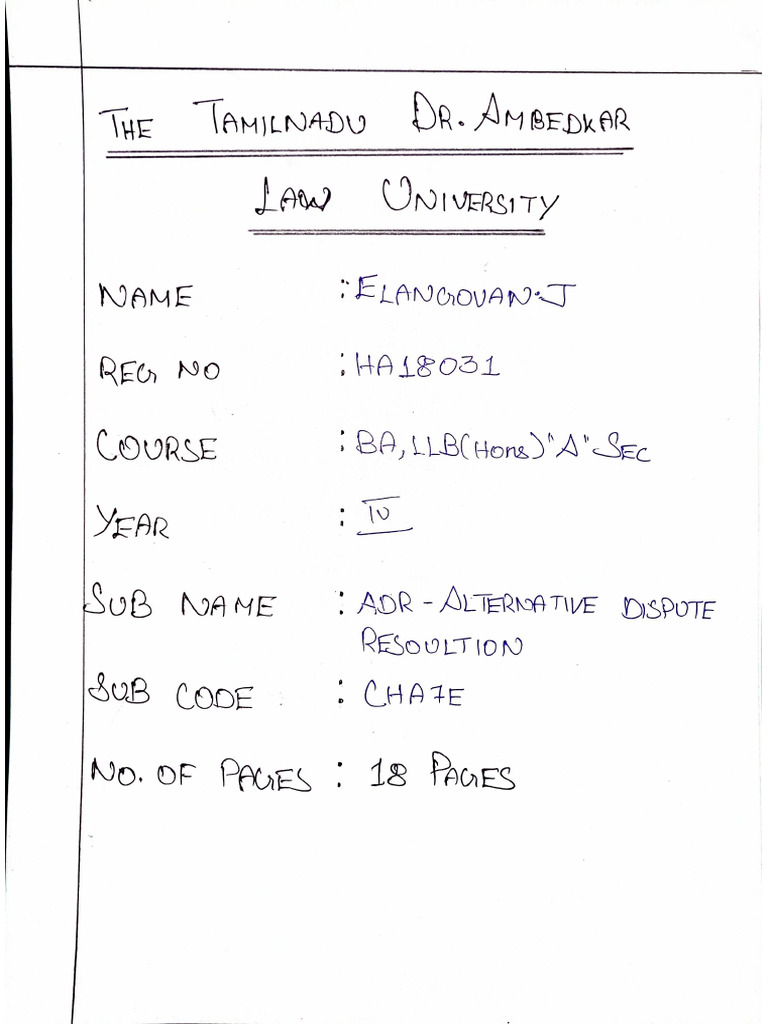 THE TAMILNADU DR. AMBEDKAR
LAW UNIVERSITY
NAME : ELANGOVAN.J
REG NO : HA18031
COURSE : BA, LLB(Hons) "A" SEC
YEAR : IV
SUB NAME : ADR - ALTERNATIVE DISPUTE
RESOULTION
SUB CODE : CHA7E
NO. OF PAGES : 18 PAGES